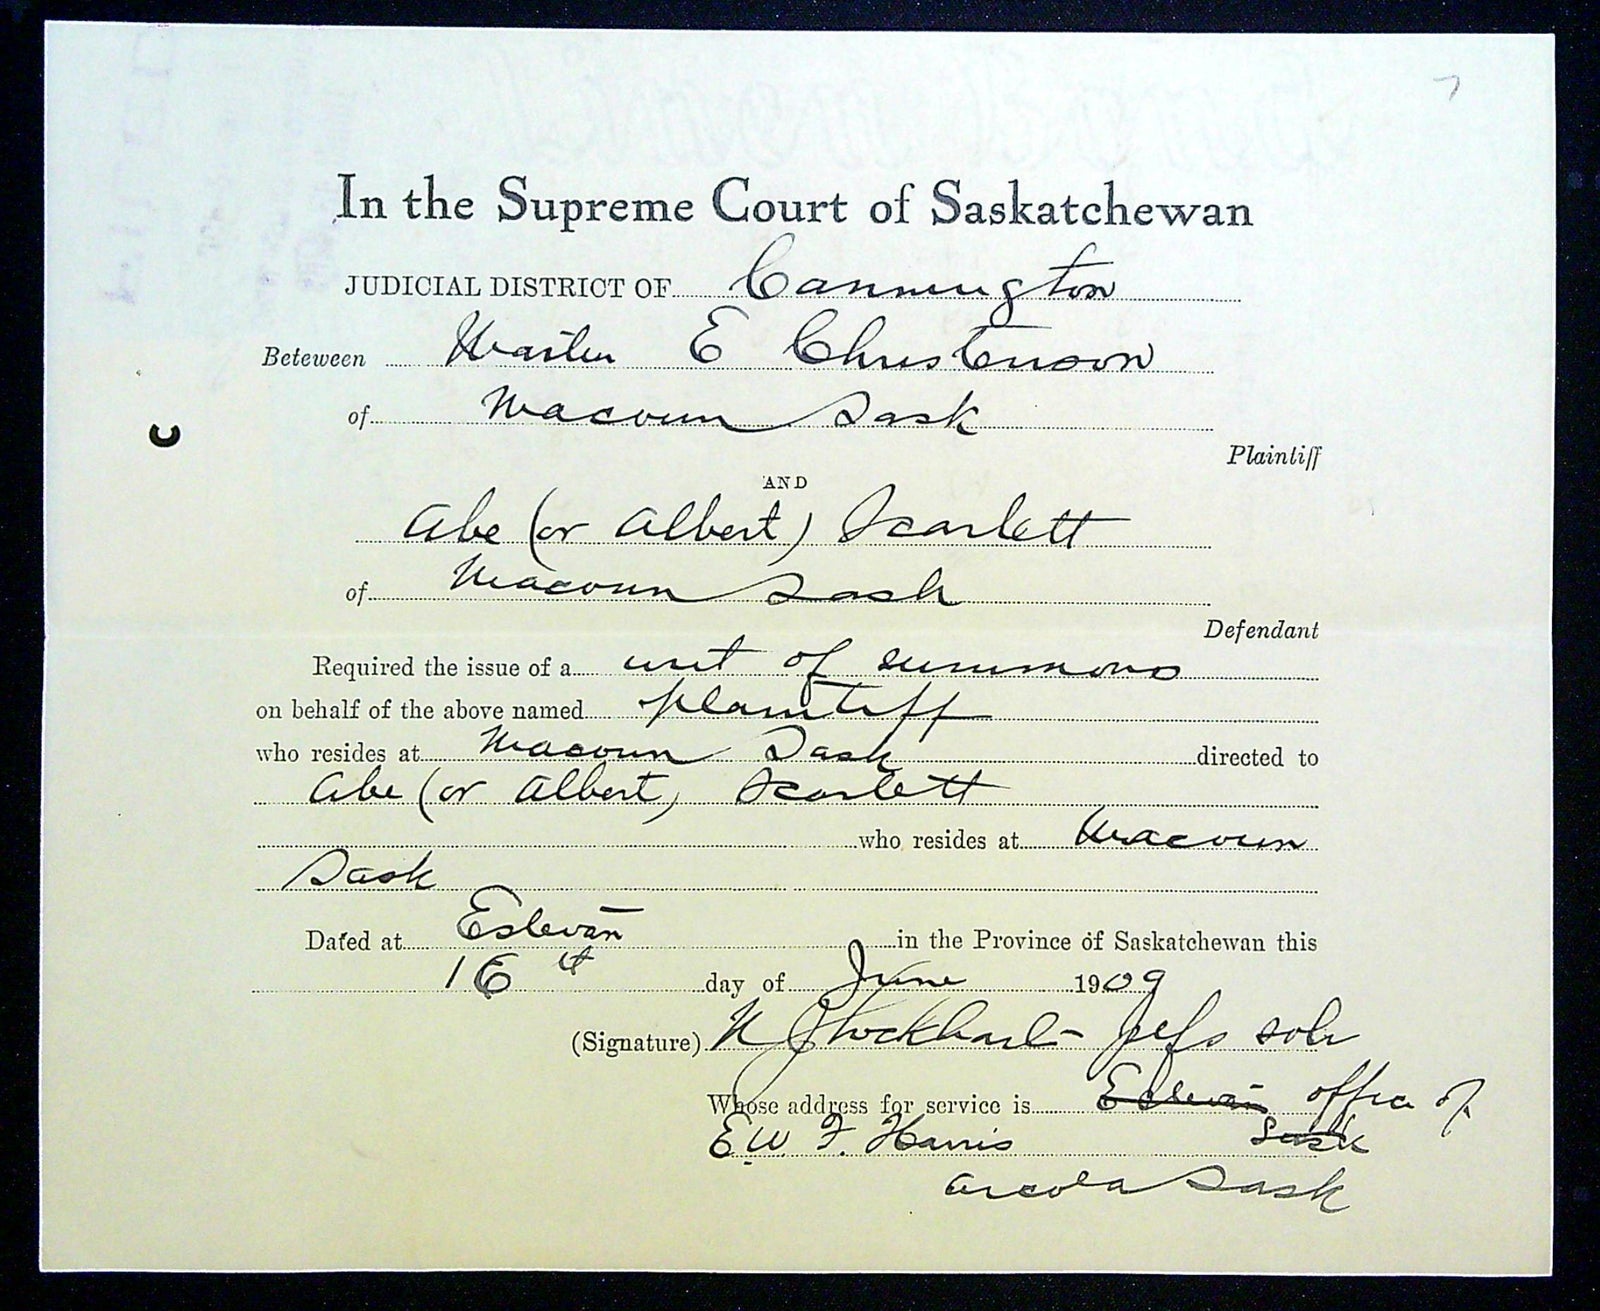 In the Supreme Court of Saskatchewan
JUDICIAL DISTRICT OF Cannington
Beteween Martin E Christenson
of Macoun Sask
Plaintiff
AND
Abe (or Albert) Scarlett
of Macoun Sask
Defendant
Required the issue of a writ of summons
on behalf of the above named plaintiff
who resides at Macoun Sask directed to
Abe (or Albert) Scarlett
who resides at Macoun
Sask
Dated at Estevan in the Province of Saskatchewan this
16th day of June 1909
(Signature) plfs solr
Whose address for service is Estevan office of
E.W. F. Harris Sask
Arcola Sask